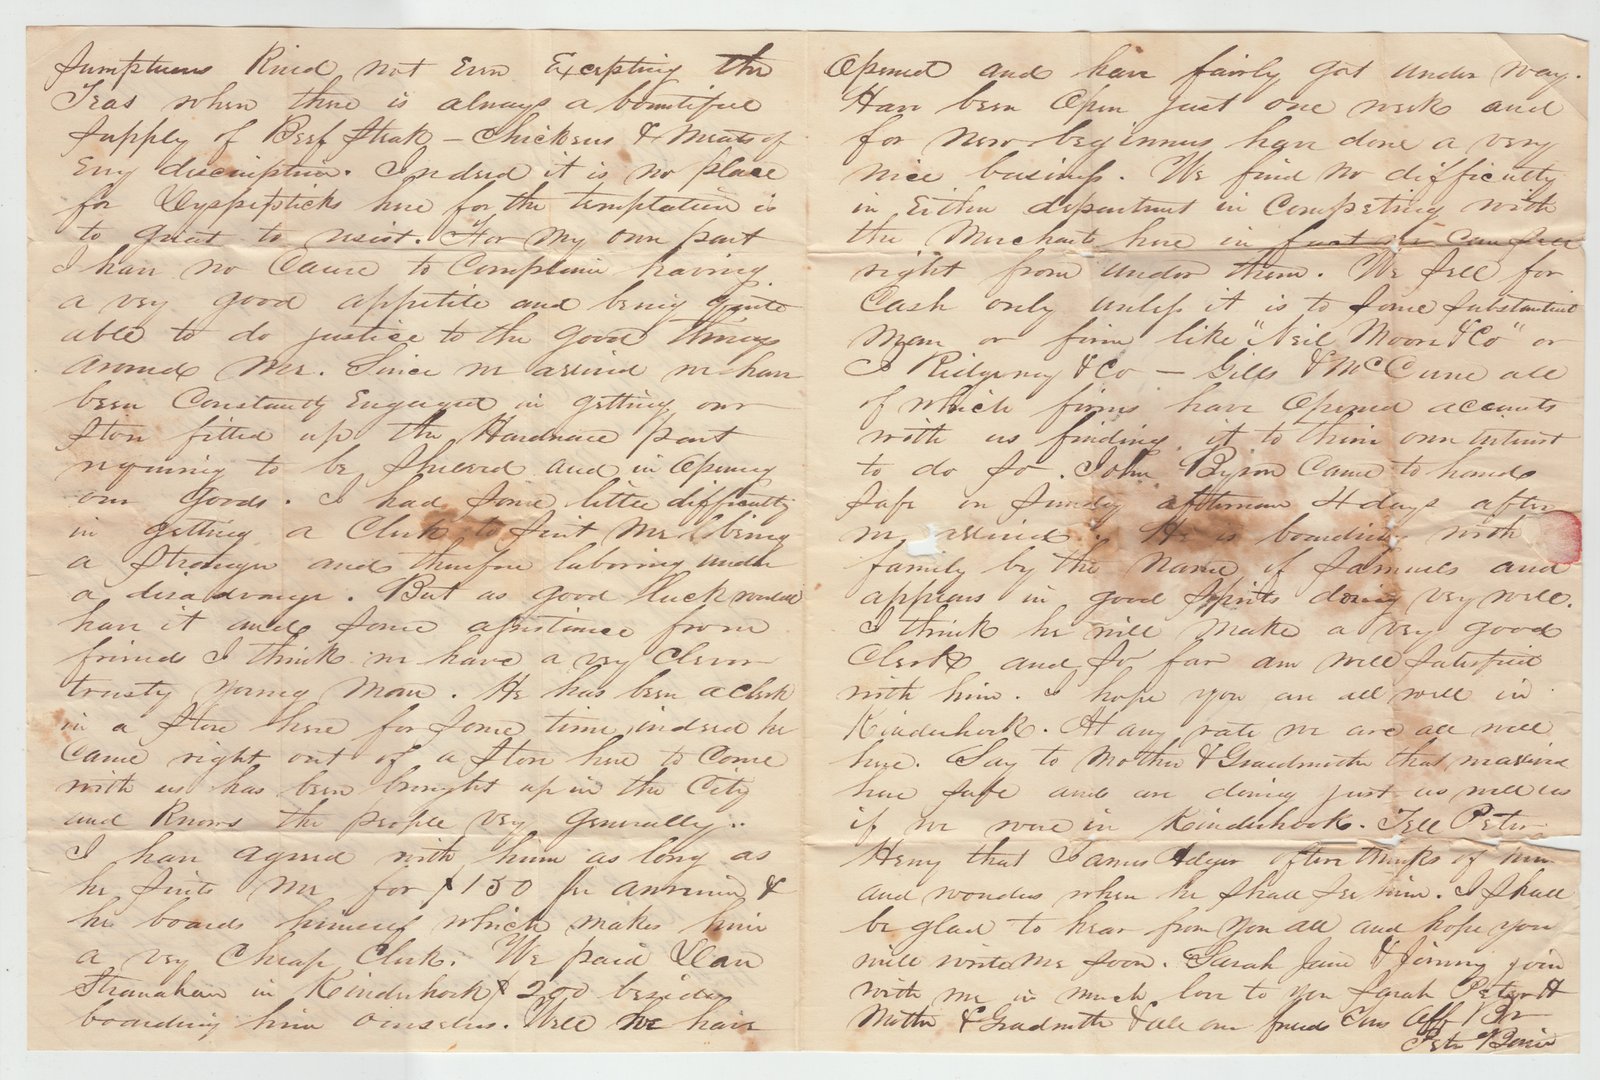 Sumptuous Kind not even Excepting the
Teas when there is always a bountiful
Supply of Beef Steak - Chickens & Meats of
Evry discription. Indeed it is no place
for Dyspepticks here for the temptation is
to great to resist. For my own part
I have no Cause to Complain having
a very good appetite and being quite
able to do justice to the good things
around Me. Since we arrived we have
been Constantly Engaged in getting our
Store fitted up the Hardware part
requiring to be Shelved and in opening
our goods. I had some little difficulty
in getting a Clerk to Suit Me being
a Stranger and therefore laboring under
a disadvange. But as good luck would
have it and some assistance from
friends I think we have a very Clever
trusty young Man. He has been a clerk
in a Store here for some time indeed he
came right out of a Store here to Come
with us has been brought up in the City
and Knows the people very generally..
I have agreed with him as long as
he Suits Me for $150 per annum &
he boards himself which makes him
a very Cheap Clerk. We paid
Stranahan in Kinderhook $200 beside
boarding him ourselves. Well we have
Opened and have fairly got under way.
Have been Open just one week and
for New beginners have done a very
nice business. We find no difficulty
in Either department in Competing with
the Merchants here in fact we Can Sell
right from under them. We Sell for
Cash only unless it is to Some Substantial
Man or firm like "Neil Moore & Co" or
J Ridgeway & Co - Gills & McCune all
of which firms have Opened accounts
with us finding it to their own intrust
to do so. John Byron Came to hand
Safe on Sunday afternoon 4 days after
we arrived. He is boarding with
family by the Name of and
appears in good Spirits doing very well.
I think he will Make a very good
Clerk and So far am well Satisfied
with him. I hope you are all well in
Kinderhook. At any rate we are all well
here. Say to Mother & Grandmother that we arrived
here Safe and are doing just as well as
if we were in Kinderhook. Tell Peter
Henry that James often thinks of him
and wonders when he Shall See him. I Shall
be glad to hear from you all and hope you
will write Me Soon. Sarah Jane & Jimmy join
with me in much love to you Sarah Peter H
Mother & Grandmother & all our friends Aff Br
Peter